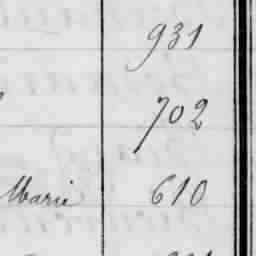 931
702
Marie 610